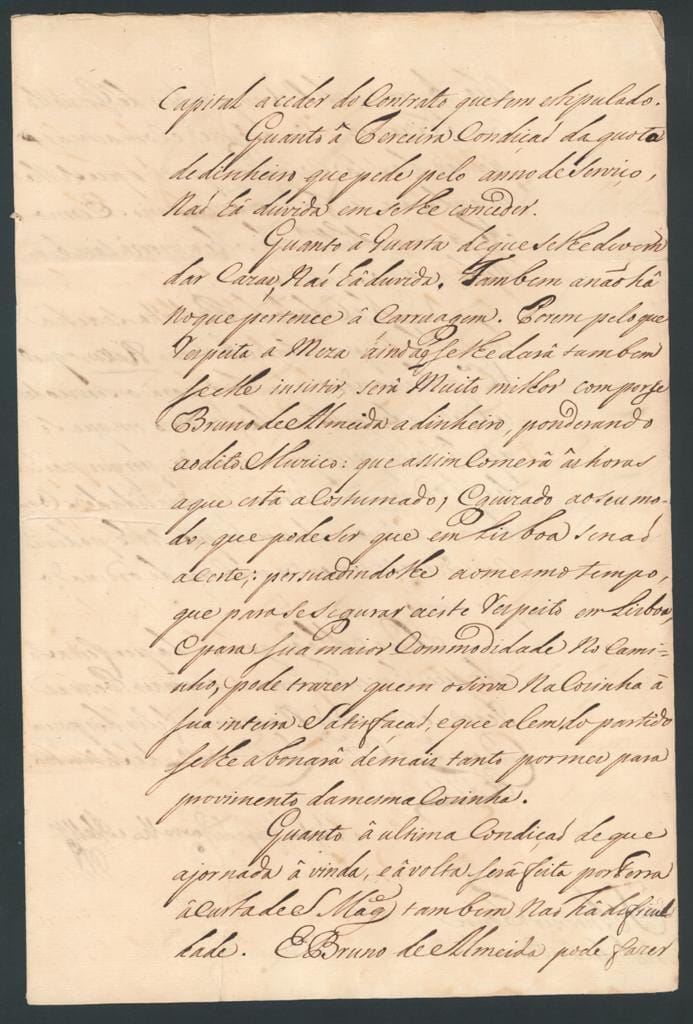 Capital a ceder do Contrato que tem estipulado.
Quanto â Terceira Condiçaõ da quota
de dinheiro que pede pelo anno de Serviço,
Naõ há duvida em se lhe conceder.
Quanto â Quarta de que se lhe devem
dar Cazas, Naõ hâ duvida. Tambem a não hâ
No que pertence â Carruagem. Porem pelo que
respeita â Meza ainda q̃ se lhe darâ tambem
se elle insistir, serâ Muito milhor compor se
Bruno de Almeida a dinheiro, ponderando
ao dito Muzico: que assim Comerâ âs horas
a que esta aCostumado; e guizado ao seu mo-
do, que pode ser que em Lisboa se naõ
acerte: persuadindo lhe ao mesmo tempo,
que para se segurar a este respeito em Lisboa,
e para sua maior Commodidade No Cami-
nho, pode trazer quem o sirva Na Cosinha â
sua inteira Satisfaçaõ, e que alem do partido
se lhe abonarâ demais tanto por mes para
provimento da mesma Cosinha.
Quanto â ultima Condiçaõ de que
a jornada â vinda, e â volta serâ feita por terra
â custa de S Mag.e tambem Naõ hâ dificul
dade. E Bruno de Almeida pode fazer